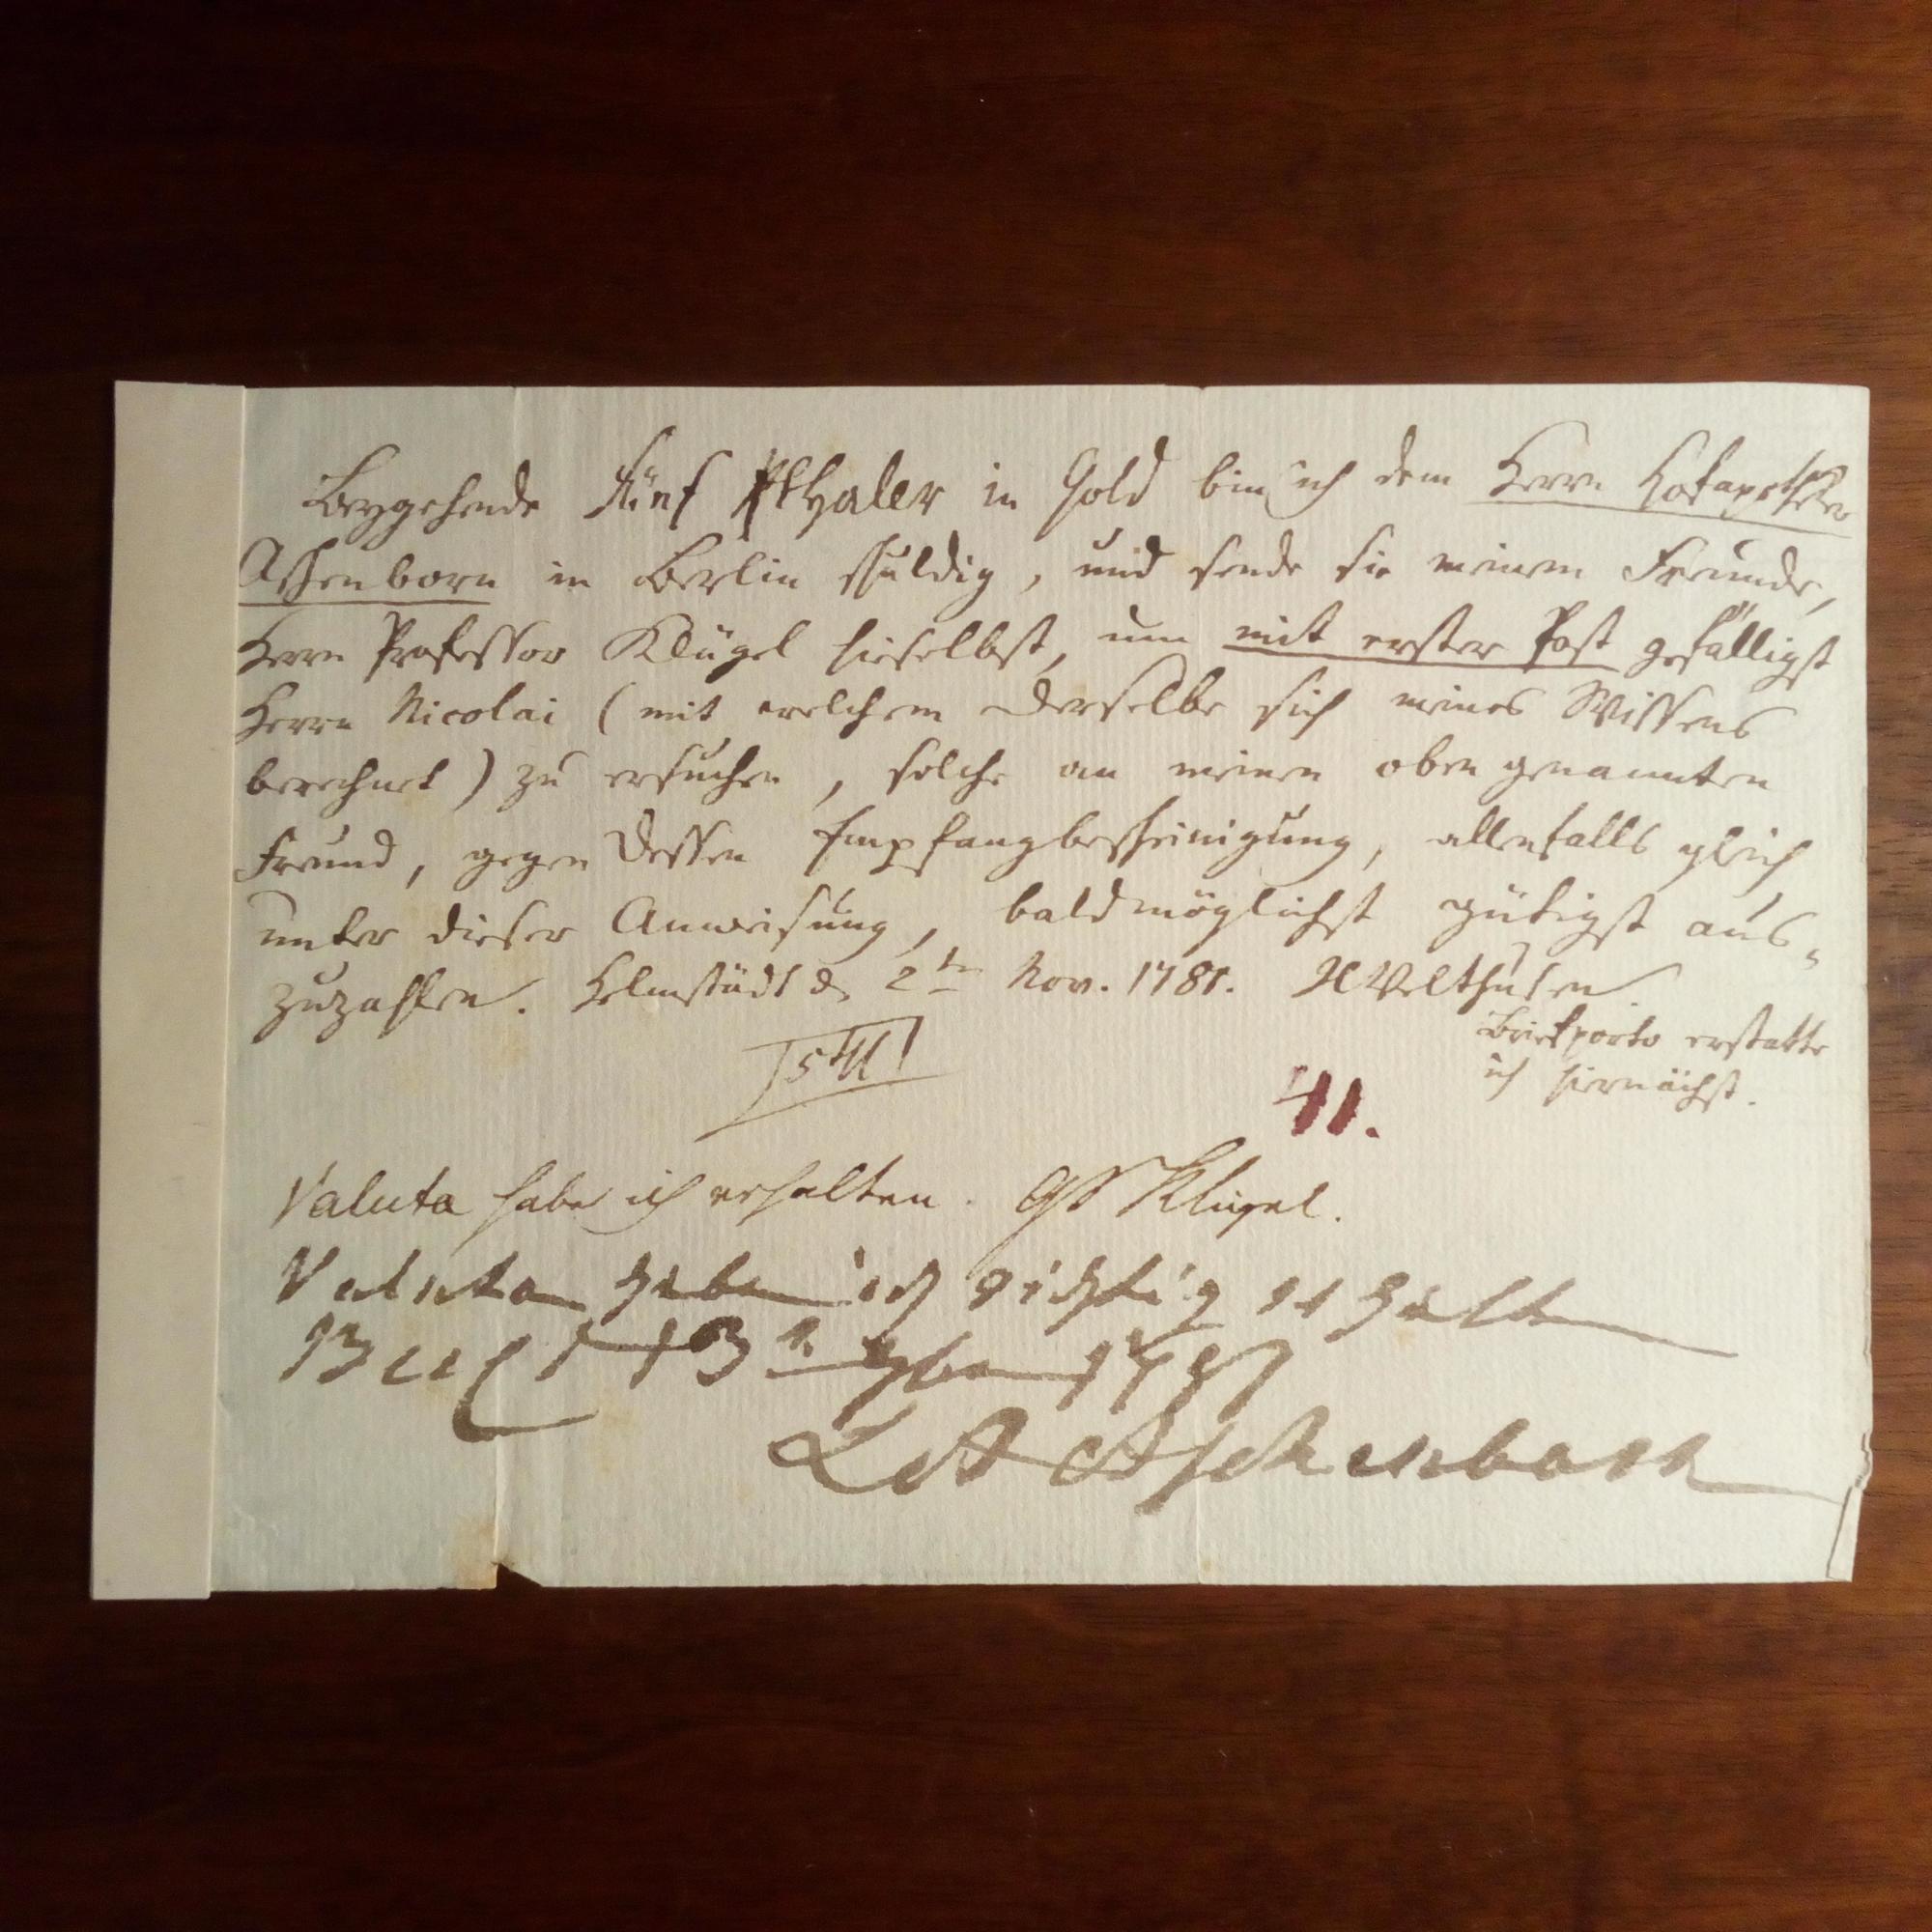 Beygehende Fünf Rthaler in Gold bin ich dem Herrn Hofapotheker
Aschenborn in Berlin schuldig, und sende sie meinem Freunde,
Herrn Professor Klügel hieselbst, um mit erster Post gefälligst
Herrn Nicolai (mit welchem derselbe sich meines Wissens
berechnet) zu ersuchen, solche an meinen oben genannten
Freund, gegen dessen Empfangbescheinigung, allenfalls gleich
unter dieser Anweisung, baldmöglichst gütigst aus-
zuzahlen. Helmstädt d. 2ten Nov. 1781. Velthusen.
Briefporto erstatte
ich hiernächst.
41.
Valuta habe ich erhalten. GS Klügel.
Valuta habe ich richtig erhalt
Aschenborn